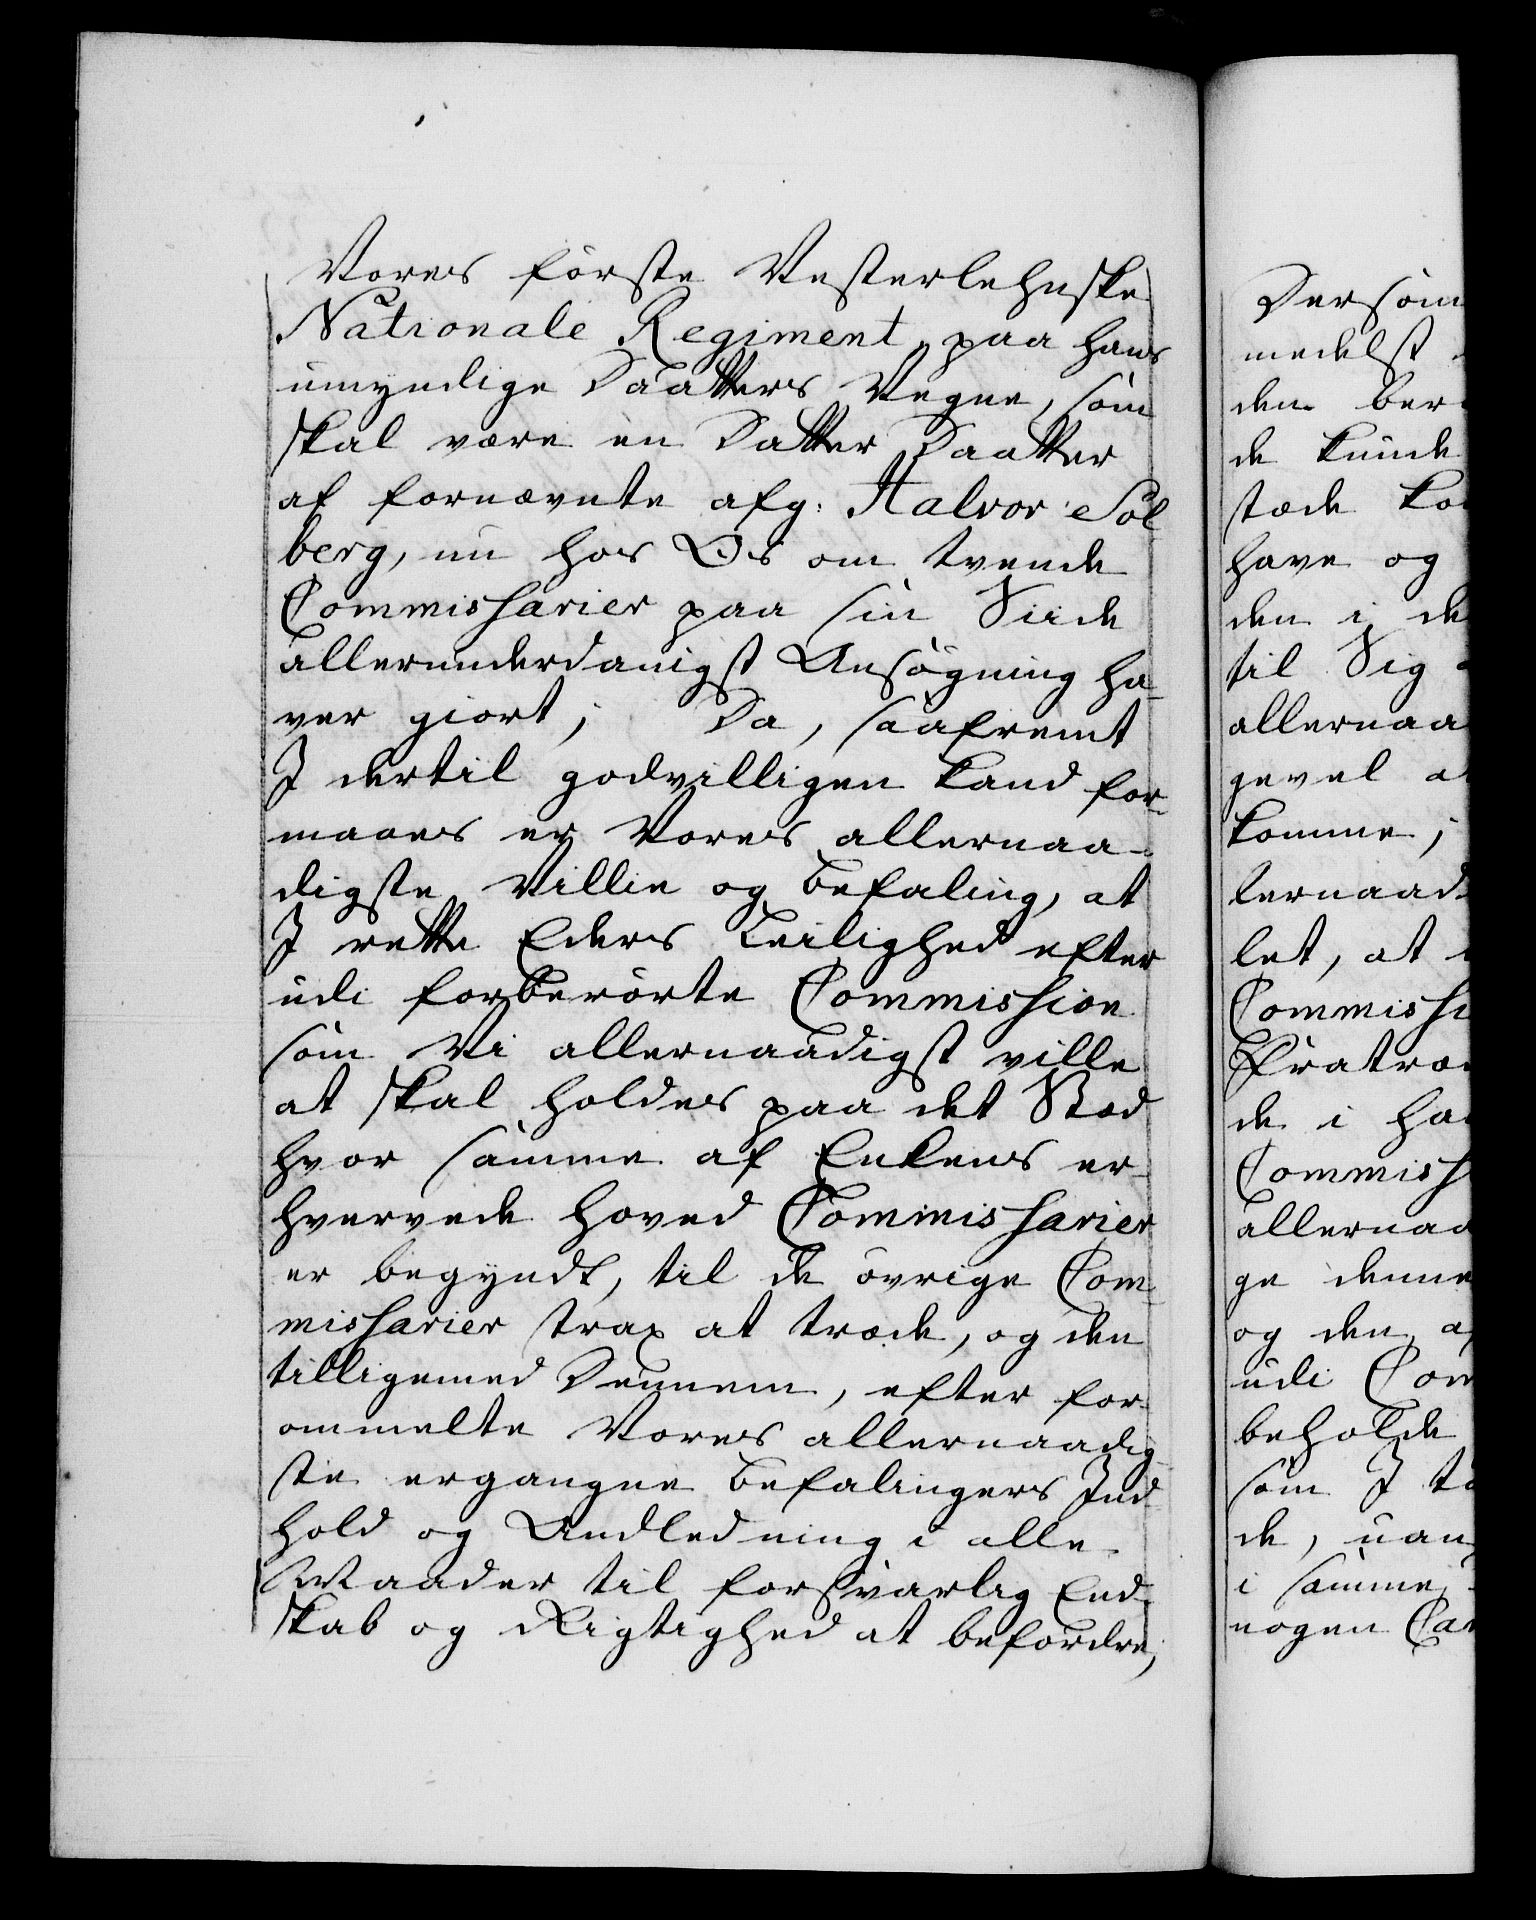 Vores første Vesterlehnske
Nationale Regiment, paa hans
umyndige Daatters Vegne, som
skal være en Datter Daatter
af fornævnte afg: Halvor Sol
berg, nu hos Os om tvende
Commissarier paa sin Siide
allerunderdanigst Ansøgning ha-
ver giort; Da, saafremt
I dertil godvilligen kand for-
maaes er Vores allernaa-
digste Villie og Befaling, at
I rette Eders Leilighed efter
udi forberørte Commission
som Vi allernaadigst ville
at skal holdes paa det Stæd
hvor samme af Enkens er-
hvervede Hoved Commissarier
er begyndt, til de øvrige Com-
missarier strax at træde, og den
tilligemed Dennem, efter for-
ommelte Vores allernaadig-
ste ergangne Befalingers Ind-
hold og Andledning i alle
Maader til forsvarlig End-
skab og Rigtighed at befordre,
Dersom
medelst
den ber
de kunde
stæde ko
have og
den i de
til Sig
allernaa
gevel a
komme;
lernaad
let, at
Commissi
Fratræ
de i ha
Commiss
allernaa
ge denne
og den a
udi Com
beholde
som I to
de, uan
i samme
nogen Ca